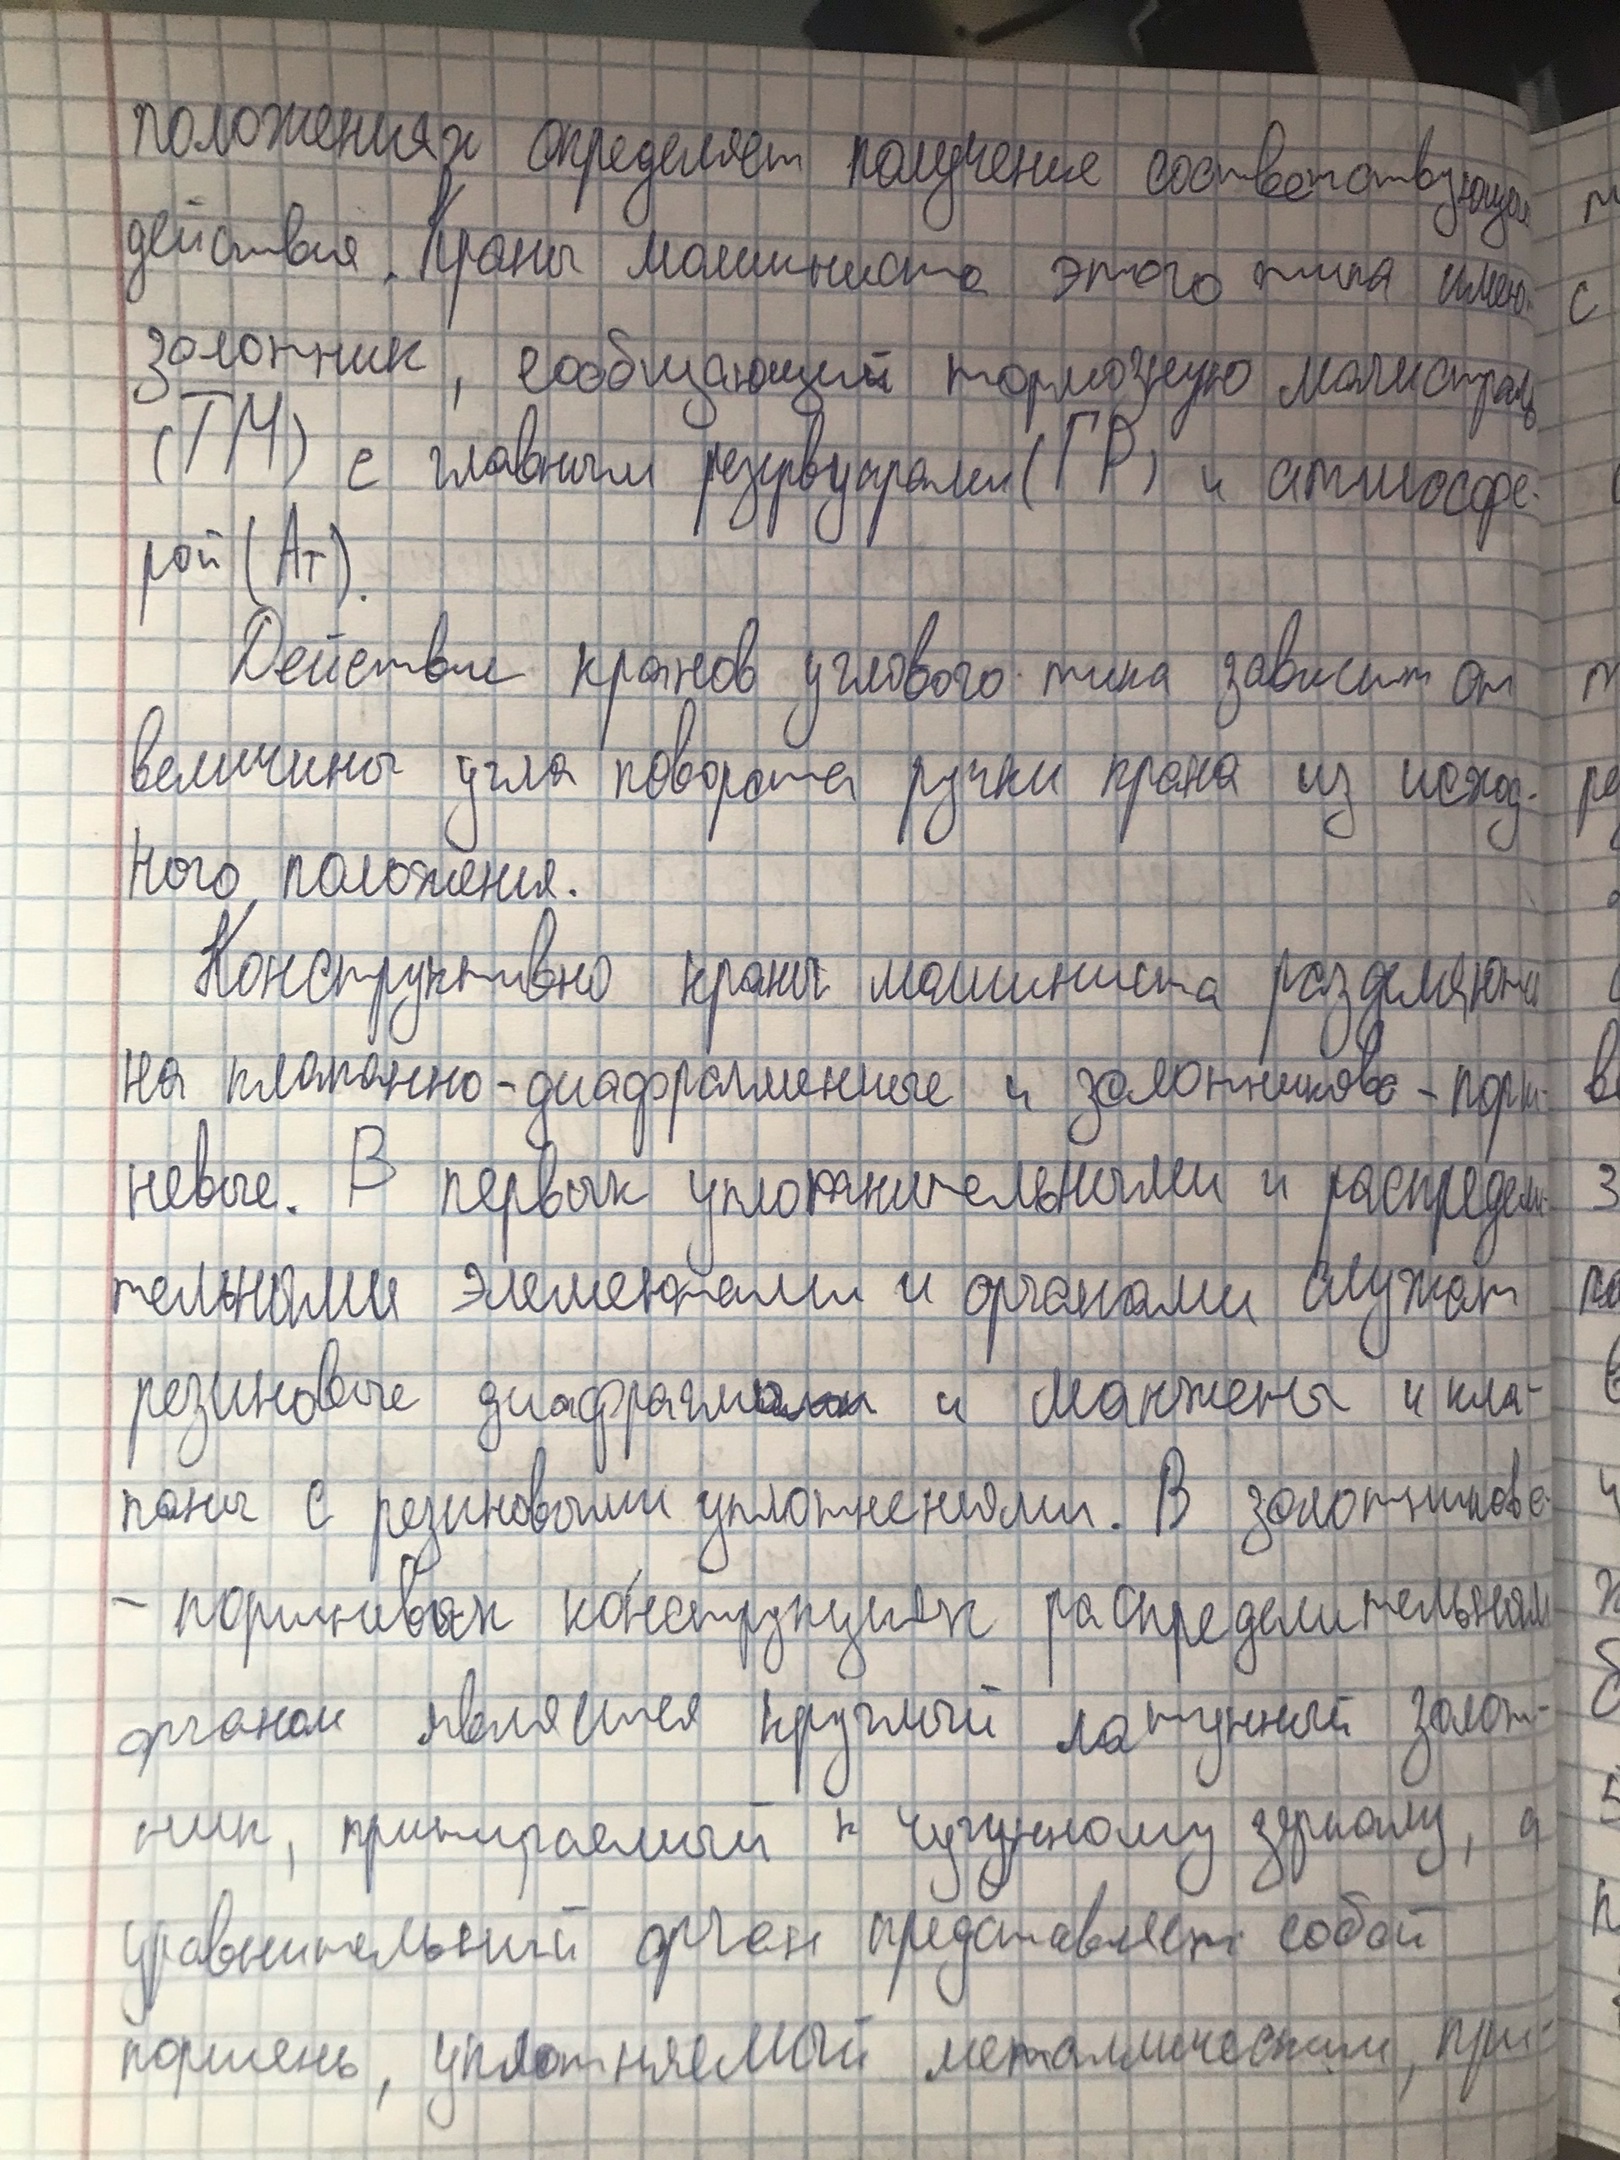 положениях определяет получение соответствующая
действия. Краны машиниста этого типа имею
золотник, сообщающий тормозную магистраль
(ТМ) с главным резервуарами (ГР) и атмосфе-
рой (Ат).
Действие кранов углового типа зависит от
величины угла поворота ручки крана из исход-
ного положения.
Конструктивно краны машиниста разделяются
на клапанно-диафрагменные и золотниково-порш-
невые. В первых уплотнительными и распредели-
тельными элементами и органами служат
резиновые диафрагмы и манжеты и кла-
паны с резиновыми уплотнениями. В золотниково-
-поршневых конструкциях распределительным
органом является круглый латунный золот-
ник, притираемый к чугунному зеркалу, а
уравнительный орган представляет собой
поршень, уплотняемый металлическим, при-